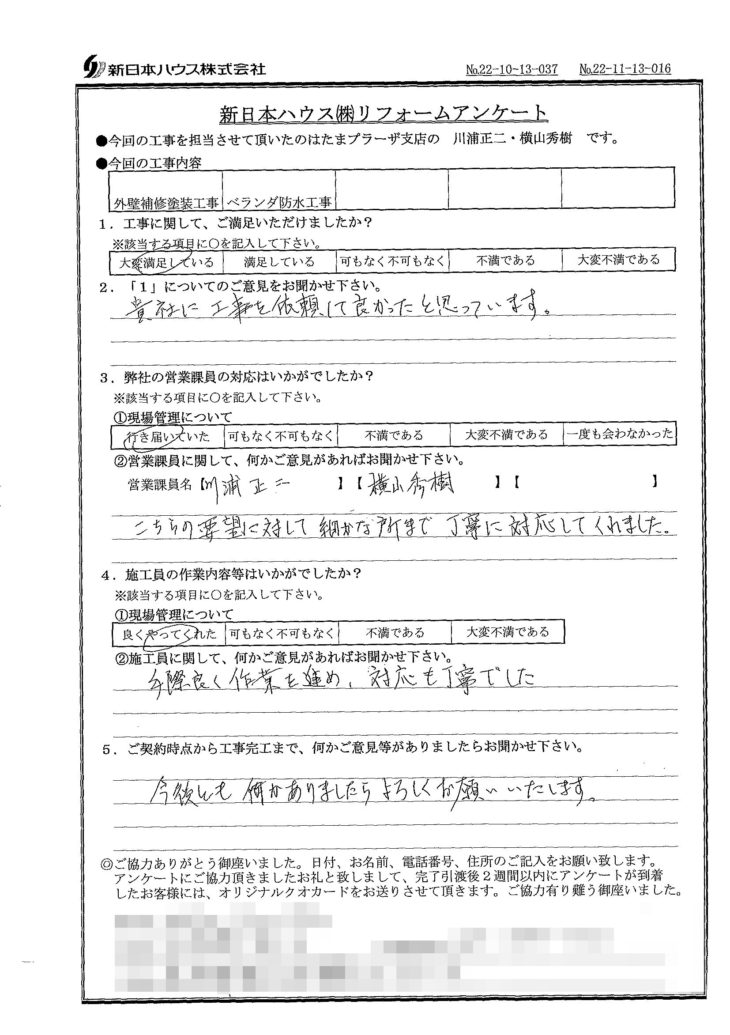 新日本ハウス株式会社 №22-10-13-037 №22-11-13-016
新日本ハウス㈱リフォームアンケート
●今回の工事を担当させて頂いたのはたまプラーザ支店の 川浦正二・横山秀樹 です。
●今回の工事内容
外壁補修塗装工事 ベランダ防水工事
1．工事に関して、ご満足いただけましたか？
※該当する項目に○を記入して下さい。
大変満足している 満足している 可もなく不可もなく 不満である 大変不満である
2．「1」についてのご意見をお聞かせ下さい。
貴社に工事を依頼して良かったと思っています。
3．弊社の営業課員の対応はいかがでしたか？
※該当する項目に○を記入して下さい。
①現場管理について
行き届いていた 可もなく不可もなく 不満である 大変不満である 一度も会わなかった
②営業課員に関して、何かご意見があればお聞かせ下さい。
営業課員名【川浦正二】【横山秀樹】【 】
こちらの要望に対して細かな所まで丁寧に対応してくれました。
4．施工員の作業内容等はいかがでしたか？
※該当する項目に○を記入して下さい。
①現場管理について
良くやってくれた 可もなく不可もなく 不満である 大変不満である
②施工員に関して、何かご意見があればお聞かせ下さい。
手際良く作業を進め、対応も丁寧でした
5．ご契約時点から工事完工まで、何かご意見等がありましたらお聞かせ下さい。
今後とも何かありましたらよろしくお願いいたします。
◎ご協力ありがとう御座いました。日付、お名前、電話番号、住所のご記入をお願い致します。
アンケートにご協力頂きましたお礼と致しまして、完了引渡後２週間以内にアンケートが到着
したお客様には、オリジナルクオカードをお送りさせて頂きます。ご協力有り難う御座いました。